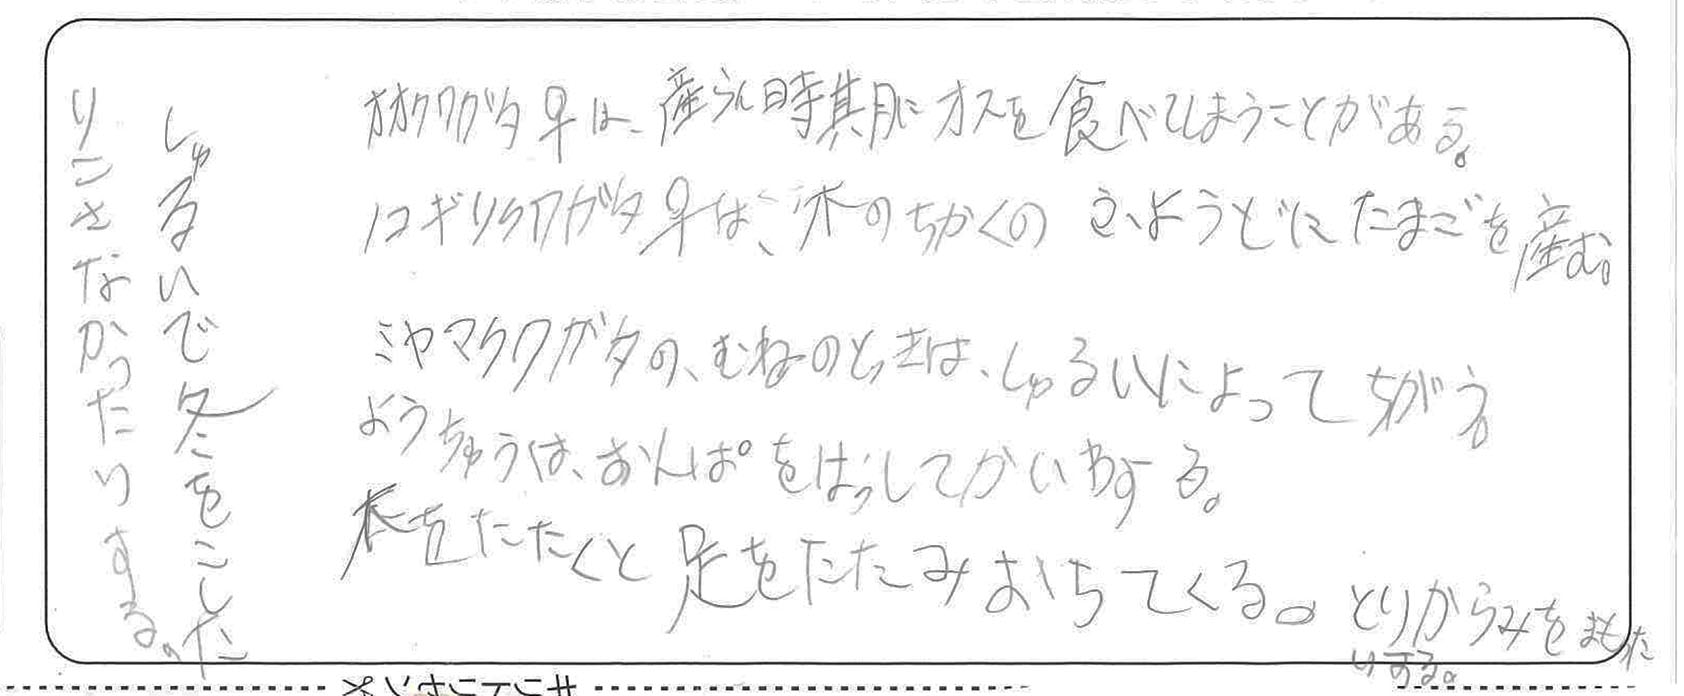 オオクワガタ♀は、産らん時期にオスを食べてしまうことがある。
ノコギリクワガタ♀は、木のちかくのふようどにたまごを産む。
ミヤマクワガタの、むねのとっきは、しゅるいによってちがう。
ようちゅうは、おんぱをはっしてかいわする。
木をたたくと足をたたみおちてくる。とりからみをまもった
りする。
しゅるいで冬をこした
りこさなかったりする。